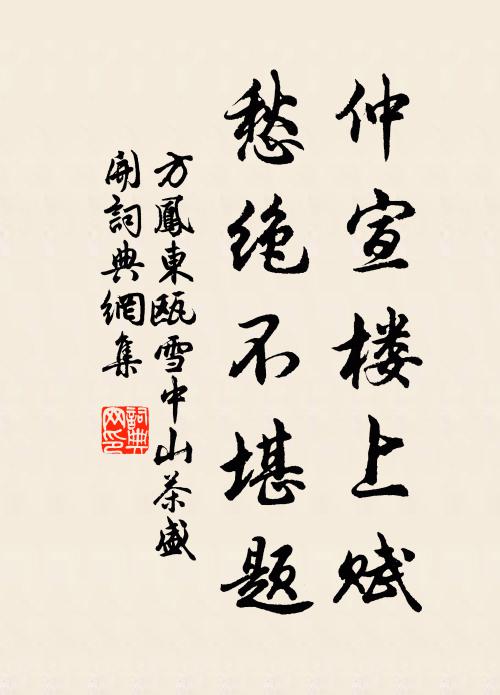 仲宣楼上赋
愁绝不堪题
方鳳東甌雪中山茶盛
開詞典網集
詞典
网印